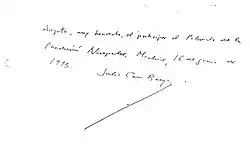 Acepto, muy honrado, el participar el Patronato de la
Fundación Navapalos. Madrid, 16 de junio de
1993.
Julio Caro Baroja.